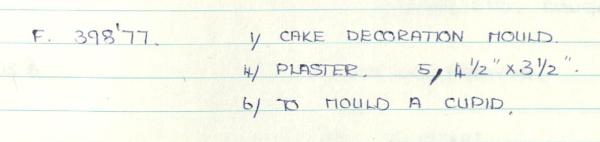 F. 398'77. 1/ CAKE DECORATION MOULD.
4/ PLASTER. 5, 4½" x 3½".
6/ TO MOULD A CUPID.